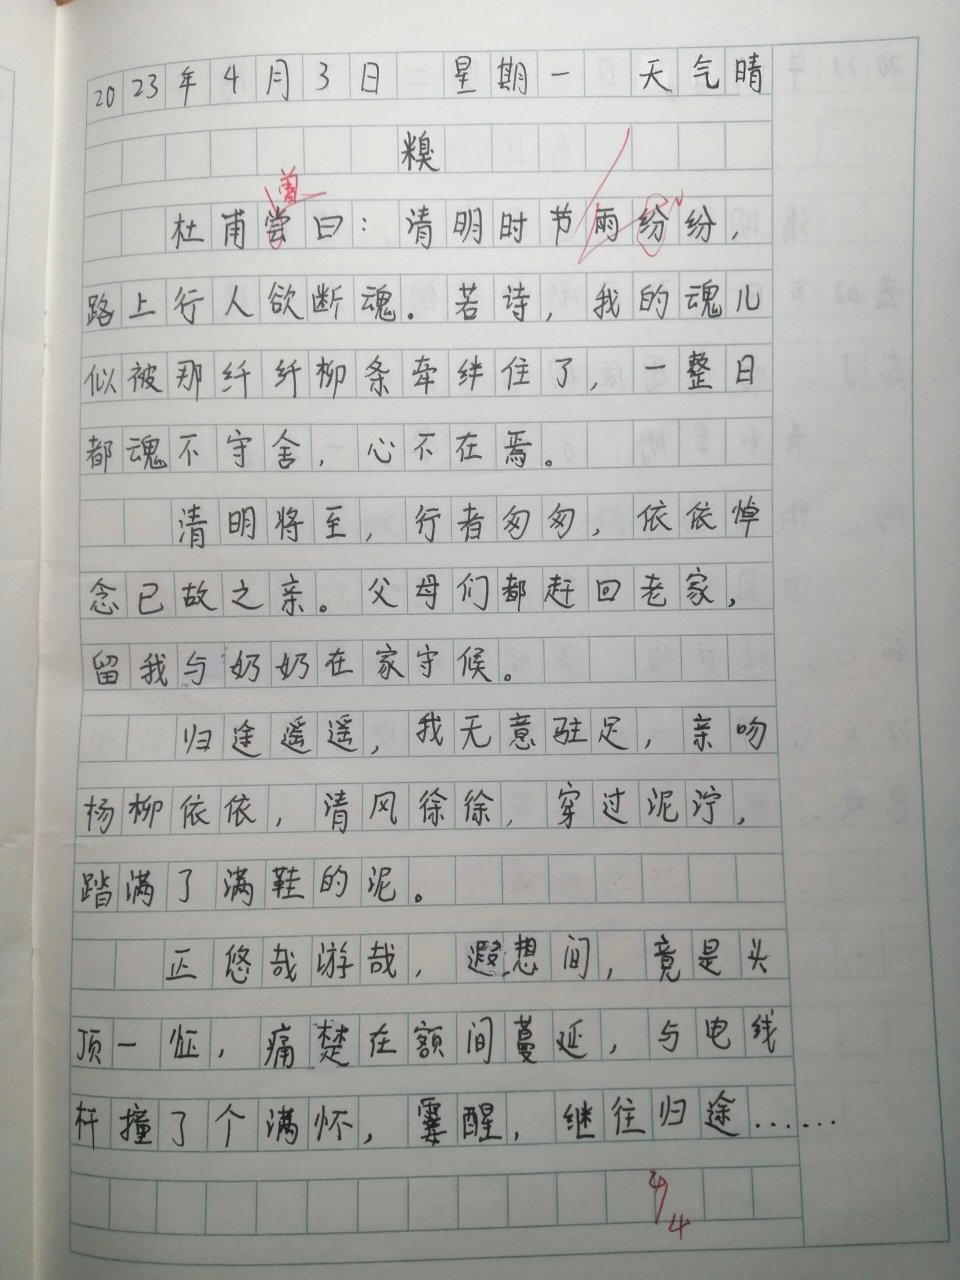 2023年4月3日 星期一 天气晴
糗
曾
杜甫尝曰：清明时节雨纷纷，
路上行人欲断魂。若诗，我的魂儿
似被那纤纤柳条牵绊住了，一整日
都魂不守舍，心不在焉。
清明将至，行者匆匆，依依悼
念已故之亲。父母们都赶回老家，
留我与奶奶在家守候。
归途遥遥，我无意驻足，亲吻
杨柳依依，清风徐徐，穿过泥泞，
踏满了满鞋的泥。
正悠哉游哉，遐想间，竟是头
顶一怔，痛楚在额间蔓延，与电线
杆撞了个满怀，霎醒，继往归途……
4/4